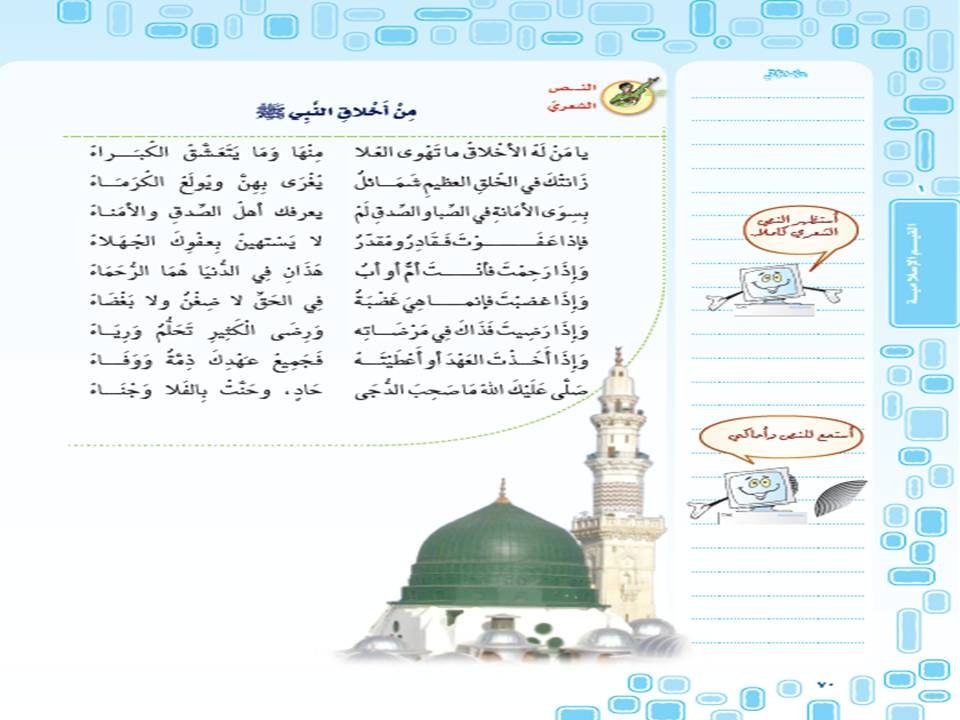 النــص
الشعري
مِنْ أَخْلاقِ النَّبِي ﷺ
يا مَنْ لَهُ الأَخْلاقُ ما تَهْوى العُلا مِنْهَا وَمَا يَتَعَشَّقُ الكُبَــــرَاءُ
زَانَتْكَ في الخُلقِ العظيمِ شَمَــائلُ يُغْرَى بِهِنَّ ويُولَعُ الكُرَمَــاءُ
بِسِوَى الأَمَانَةِ في الصِّبا والصِّدقِ لَمْ يعرفك أهلُ الصِّدقِ والأُمَناءُ
فإذا عَفَــــــــوْتَ فَقَادِرٌ ومُقدَّرٌ لا يَسْتَهينُ بِعَفْوِكَ الجُهَلاءُ
وَإِذَا رَحِمْتَ فَأنْــــتَ أُمٌّ أو أبٌ هَذَانِ فِي الدُّنيَا هُمَا الرُّحَمَاءُ
وَإِذَا غضبْتَ فإنمــا هِيَ غَضْبَةٌ فِي الحَقِّ لا ضِغْنٌ ولا بَغْضَاءُ
وَإِذَا رَضِيتَ فَذَاكَ فِي مَرْضَاتِهِ وَرِضَى الْكَثِيرِ تَحَلُّمٌ وَرِيَاءُ
وَإِذَا أَخَذْتَ العَهْدَ أو أَعْطَيْتَــهُ فَجَمِيعُ عَهْدِكَ ذِمَّةٌ وَوَفَاءُ
صَلَّى عَلَيْكَ اللهُ مَا صَحِبَ الدُّجَى حَادٍ، وحَنَّتْ بِالفَلا وَجْنَــاءُ
أستظهر النص
الشعري كاملا.
أستمع للنص وأحاكي
١
القيـم الإسلاميـة
٧٠